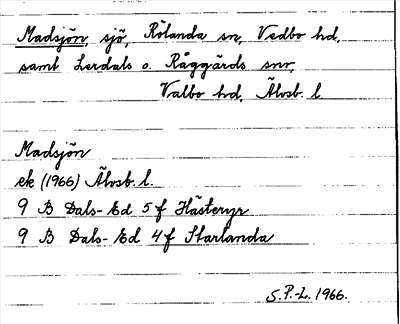 Madsjön, sjö, Rölanda sn, Vedbo hd,
samt Lerdals o. Råggärds snr,
Valbo hd, Älvsb. l.
Madsjön
ek (1966) Älvsb. l.
9 B Dals-Ed 5 f Hästeryr
9 B Dals-Ed 4 f Starlanda
S.P.-L. 1966.